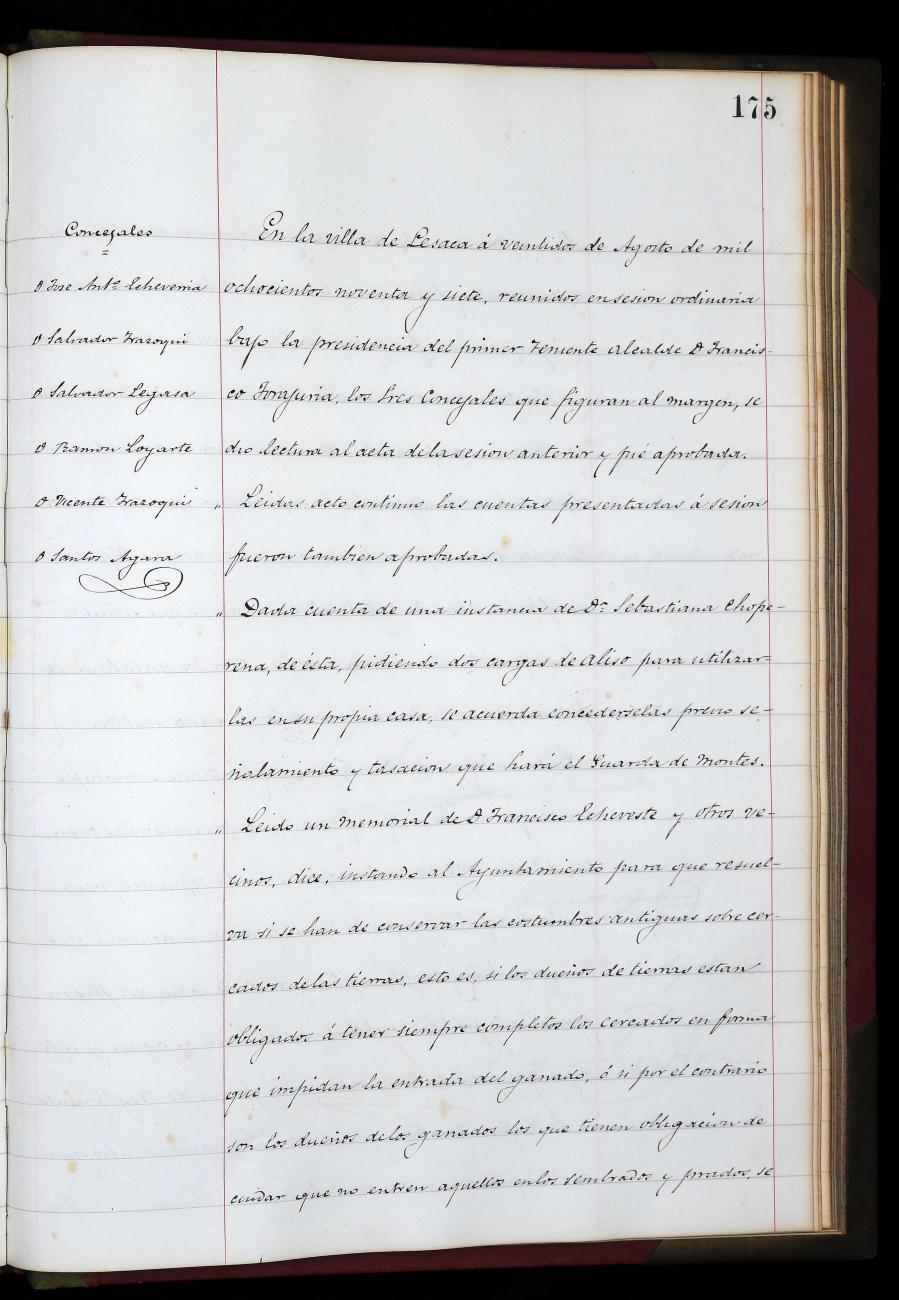 175
Concejales
D Jose Antº Echeverria
D Salvador Irazoqui
D Salvador Legasa
D Ramon Loyarte
D Vicente Irazoqui
D Santos Ayara
En la villa de Lesaca á veintidos de Agosto de mil
ochocientos noventa y siete, reunidos en sesion ordinaria
bajo la presidencia del primer Teniente alcalde D Francis-
co Tomajuria, los Sres Concejales que figuran al margen, se
dio lectura al acta de la sesion anterior y fué aprobada.
" Leidas acto continuo las cuentas presentadas á sesion
fueron tambien aprobadas.
" Dada cuenta de una instancia de Dª Sebastiana Chope-
rena, de ésta, pidiendo dos cargas de aliso para utilizar-
las en su propia casa, se acuerda concederselas previo se-
ñalamiento y tasacion que hará el Guarda de Montes.
" Leido un memorial de D Francisco Echeveste y otros ve-
cinos, dice, instando al Ayuntamiento para que resuel-
va si se han de conservar las costumbres antiguas sobre cer-
cados de las tierras, esto es, si los dueños de tierras estan
obligados á tener siempre completos los cercados en forma
que impidan la entrada del ganado, ó si por el contrario
son los dueños de los ganados los que tienen obligacion de
cuidar que no entren aquellos en los sembrados y prados, se